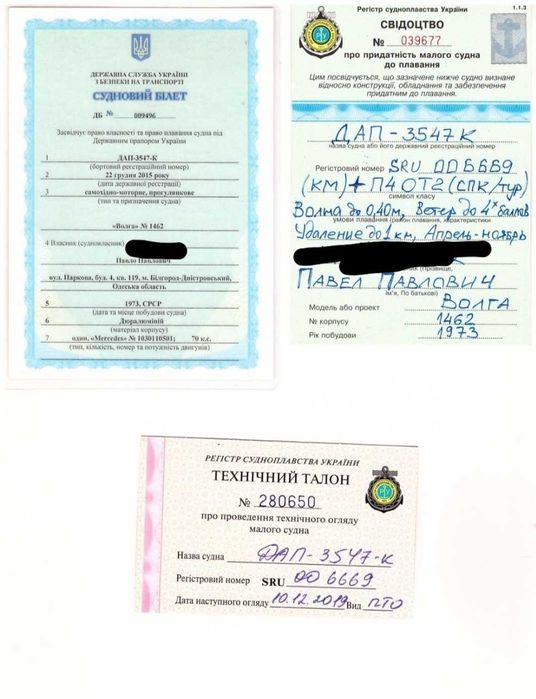 ДЕРЖАВНА СЛУЖБА УКРАЇНИ
З БЕЗПЕКИ НА ТРАНСПОРТІ
СУДНОВИЙ БІЛЕТ
ДБ № 009496
Засвідчує право власності та право плавання судна під
Державним прапором України
1 ДАП-3547-К
(бортовий реєстраційний номер)
2 22 грудня 2015 року
(дата державної реєстрації)
3 самохідно-моторне, прогулянкове
(тип та призначення судна)
«Волга» № 1462
4 Власник (судновласник)
Павло Павлович
вул. Паркова, буд. 4, кв. 119, м. Білгород-Дністровський,
Одеська область
5 1973, СРСР
(дата та місце побудови судна)
6 Дюралюміній
(матеріал корпусу)
7 один, «Mercedes» № 1030110501; 70 к.с.
(тип, кількість, номер та потужність двигунів)
Регістр судноплавства України
1.1.3
СВІДОЦТВО
№ 039677
про придатність малого судна
до плавання
Цим посвідчується, що зазначене нижче судно визнане
відносно конструкції, обладнання та забезпечення
придатним до плавання.
ДАП-3547К
назва судна або його державний реєстраційний номер
Регістровий номер SRU 006669
(КМ)+П4 ОТ2 (СПК/тур)
символ класу
Волна до 0,40м, Ветер до 4х баллов
умови плавання (район плавання, характеристики
Удаление до 1 км, Апрель-ноябрь
Павел Павлович
Ім'я, По батькові)
Модель або проект ВОЛГА
№ корпусу 1462
Рік побудови 1973
РЕГІСТР СУДНОПЛАВСТВА УКРАЇНИ
ТЕХНІЧНИЙ ТАЛОН
№ 280650
про проведення технічного огляду
малого судна
Назва судна ДАП-3547-К
Регістровий номер SRU 006669
Дата наступного огляду 10.12.2019 Вид ПТО